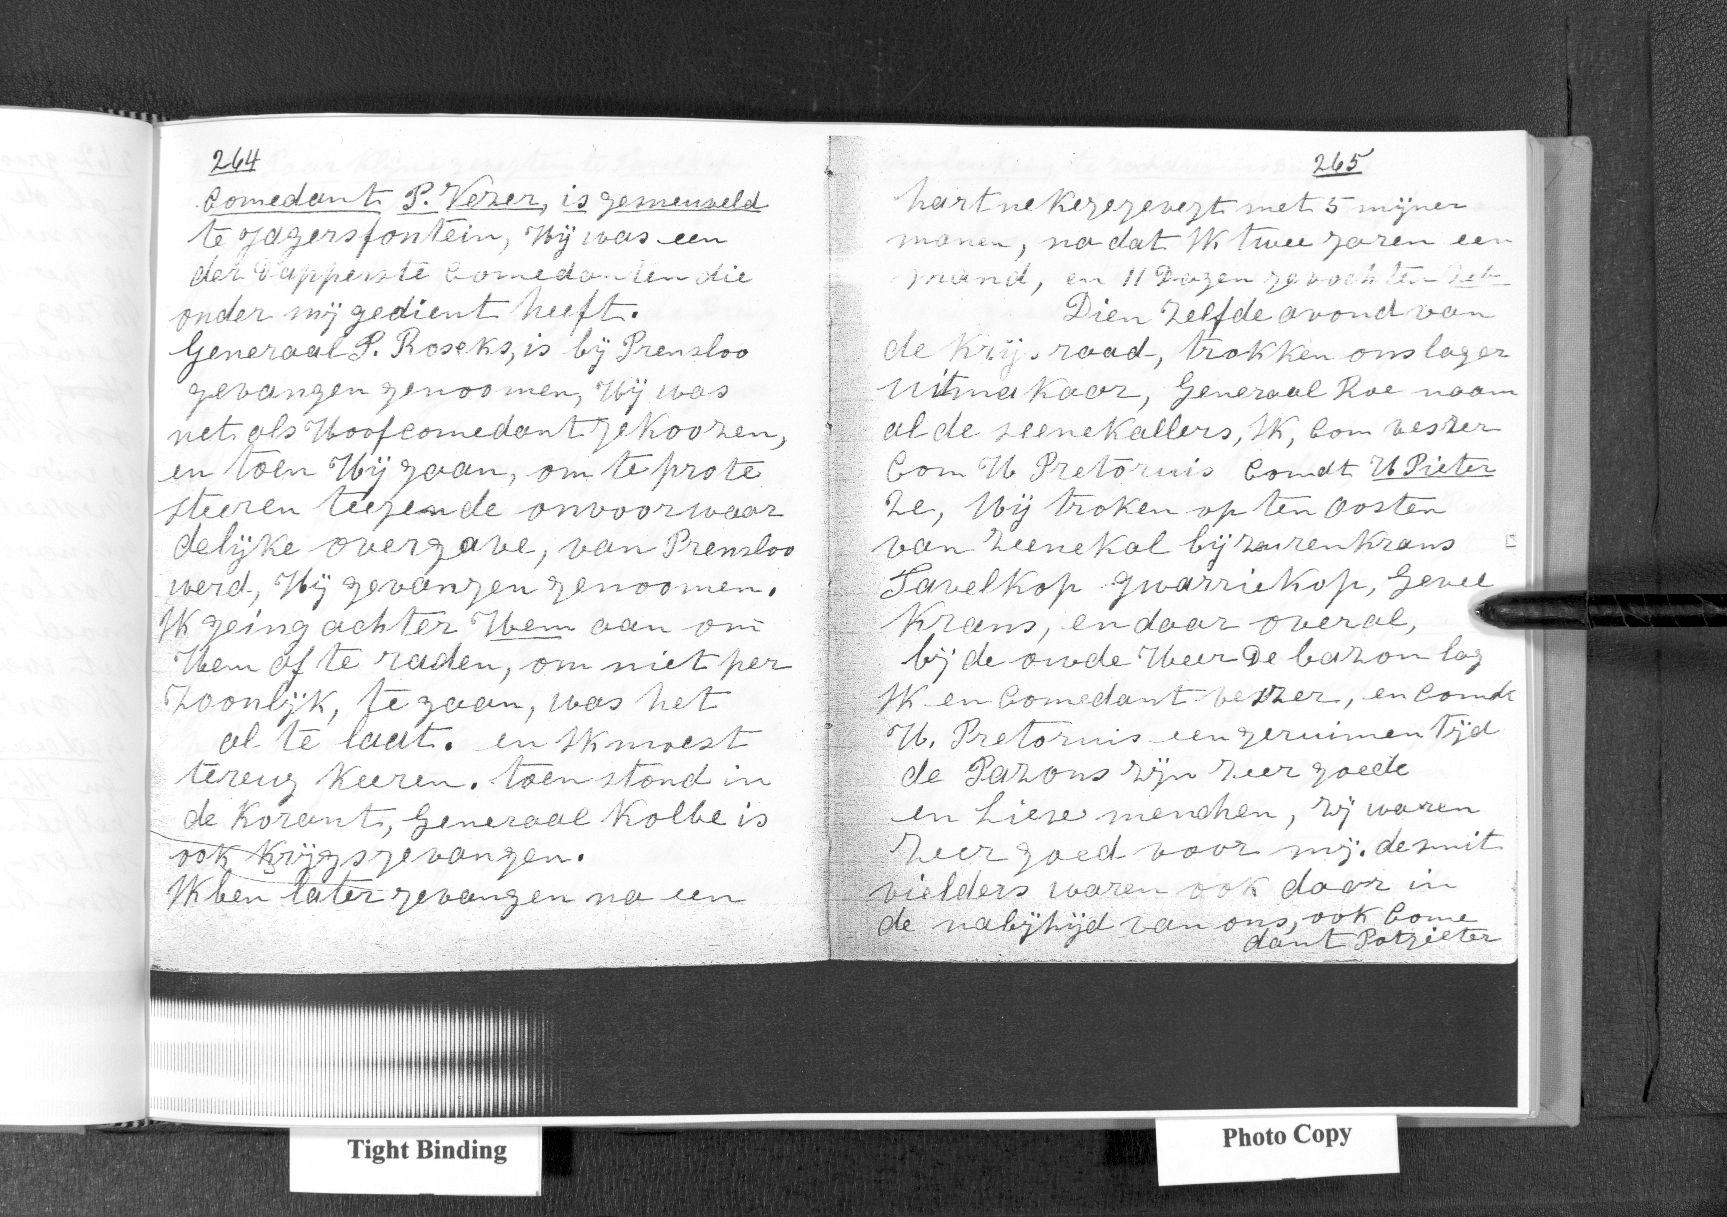 264
Comedant P. Vezer, is gemeuveld
te Jagersfontein, Hij was een
der Dapperste Comedanten die
onder mij gedient heeft.
Generaal P. Roseks, is bij Prensloo
gevangen genoomen, Hij was
net als Hoofcomedant gekoozen,
en toen Hij gaan, om te prote
steeren teegende onvoorwaar
delijke overgave, van Prensloo
werd, Hij gevangen genoomen.
Ik geing achter Hem aan om
Hem af te raden, om niet per
zoonlijk, te gaan, was het
al te laat. en Ik moest
tereug keeren. toen stond in
de Korant, Generaal Kolbe is
ook Krijgsgevangen.
Ik ben later gevangen na een
265
hartnekege gevegt met 5 mijner
manen, nadat Ik twee jaren een
mand, en 11 Dagen gevochten heb
Dien zelfde avond van
de Krijsraad, trokken ons lager
uitmakaar, Generaal Roe naam
al de zeenekallers, Ik, Com veszer
Com H Pretoruis Comdt H Pieter
ze, Wij troken op ten Oosten
van zeenekal bij zuurenkrans
Tavelkop Gwarriekop, Gevel
Krans, en daar overal,
bij de oude Heer De bazon lag
Ik en Comedant veszer, en Comdt
H. Pretoruis een geruimen Tijd
de Pazons zijn zeer goede
en Lieve menchen, zij waren
zeer goed voor mij. de smit
vielders waren ook daar in
de nabijhijd van ons, ook Come
dant Potgieter
Tight Binding
Photo Copy